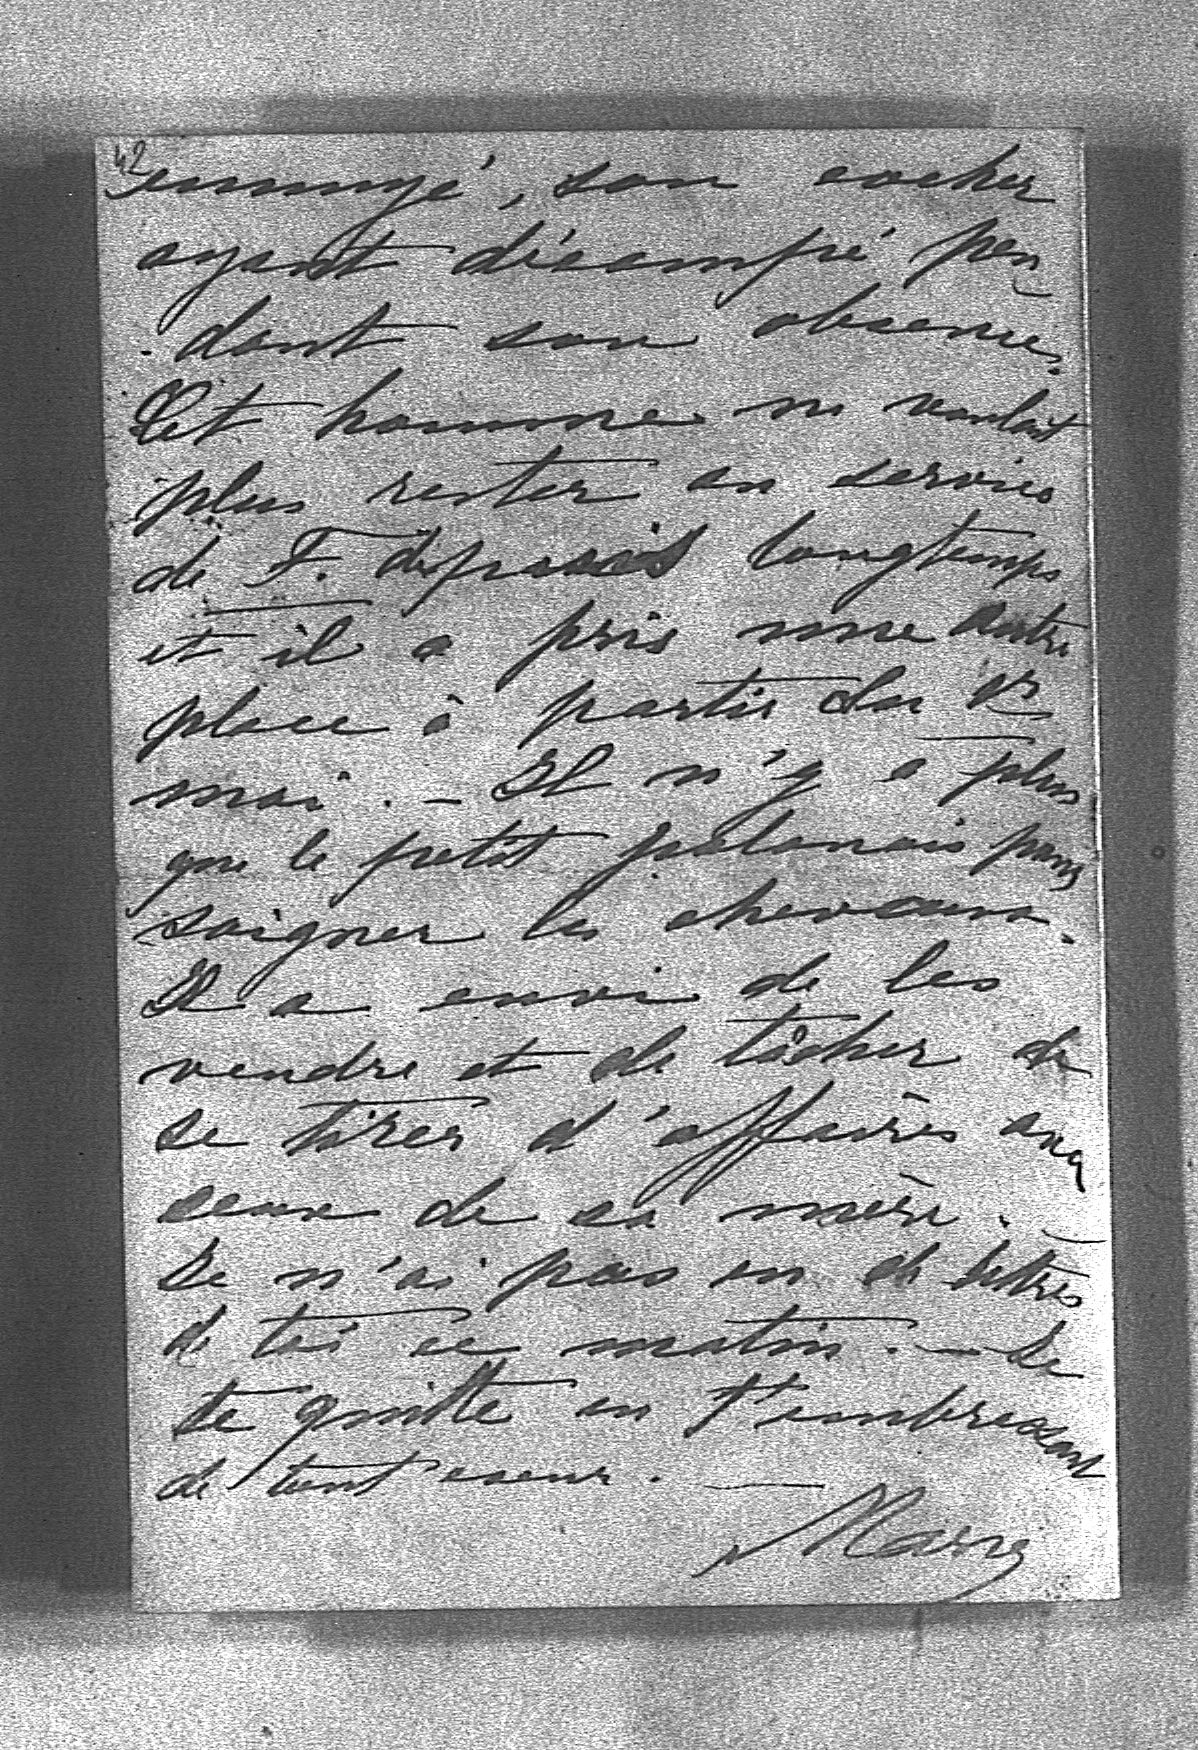 42
ennuyé, son cocher
ayant décampé pen-
dant son absence.
Cet homme ne voulait
plus rester au service
de F. depuis longtemps
et il a pris une autre
place à partir du 1er
mai. — Il n'y a plus
que le petit polonais pour
soigner les chevaux.
Il a envie de les
vendre et de tâcher de
se tirer d'affaires avec
ceux de sa mère. —
Je n'ai pas eu de lettres
de toi ce matin. — Je
te quitte en t'embrassant
de tout coeur. —